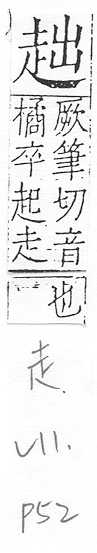 趉
厥筆切音
橘卒起走
也
走.
VII.
P52